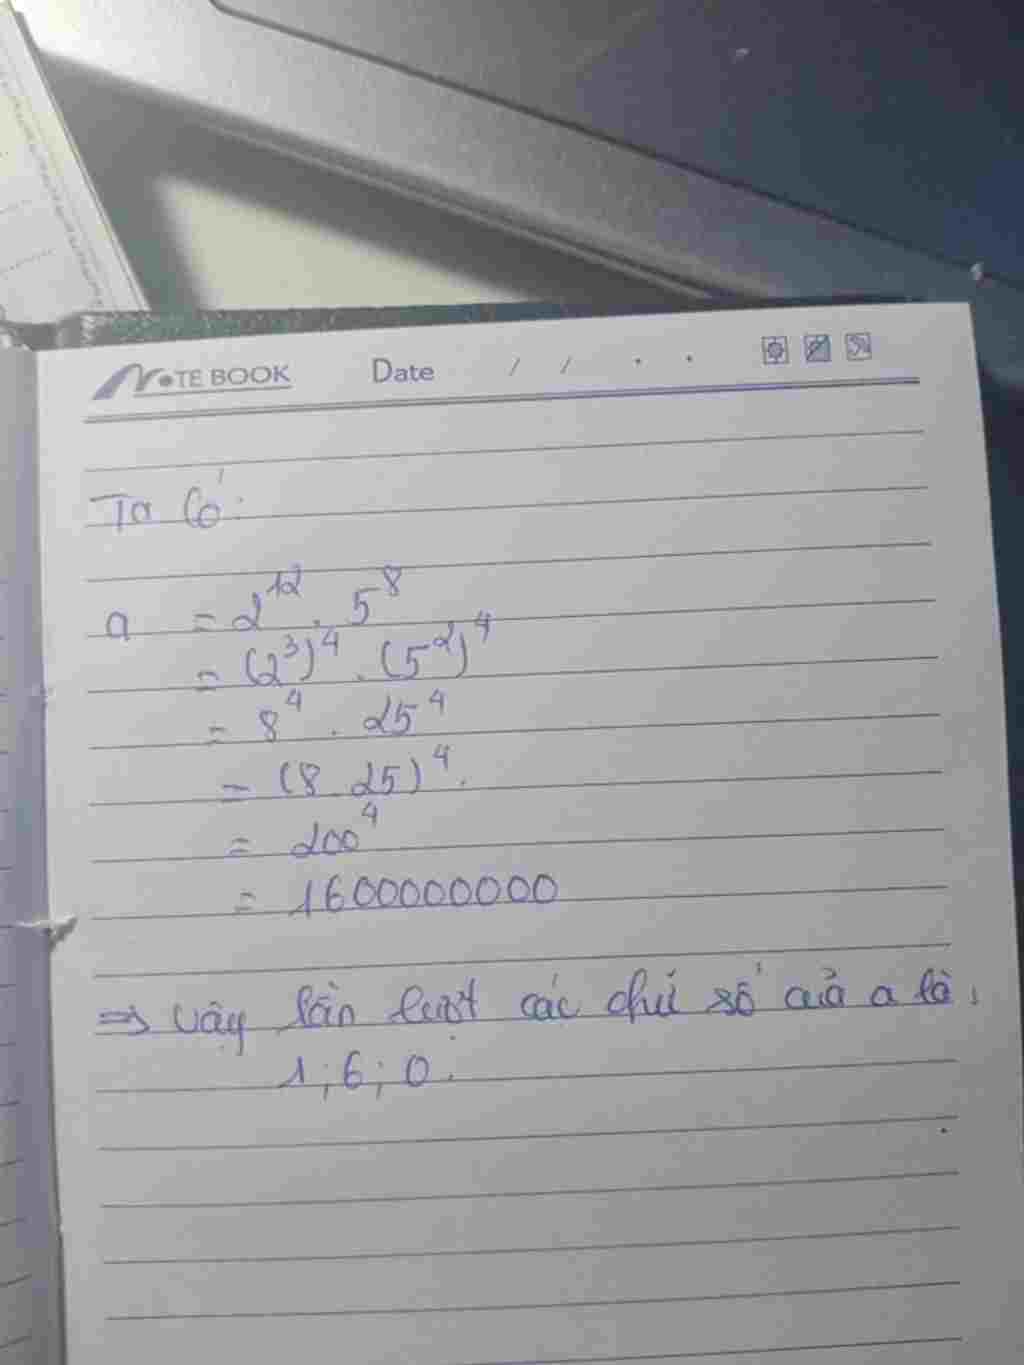 NOTE BOOK Date / /
Ta có:
a = 2¹² . 5⁸
= (2³)⁴ . (5²)⁴
= 8⁴ . 25⁴
= (8 . 25)⁴.
= 200⁴
= 1600000000
=> Vậy lần lượt các chữ số của a là:
1; 6; 0.